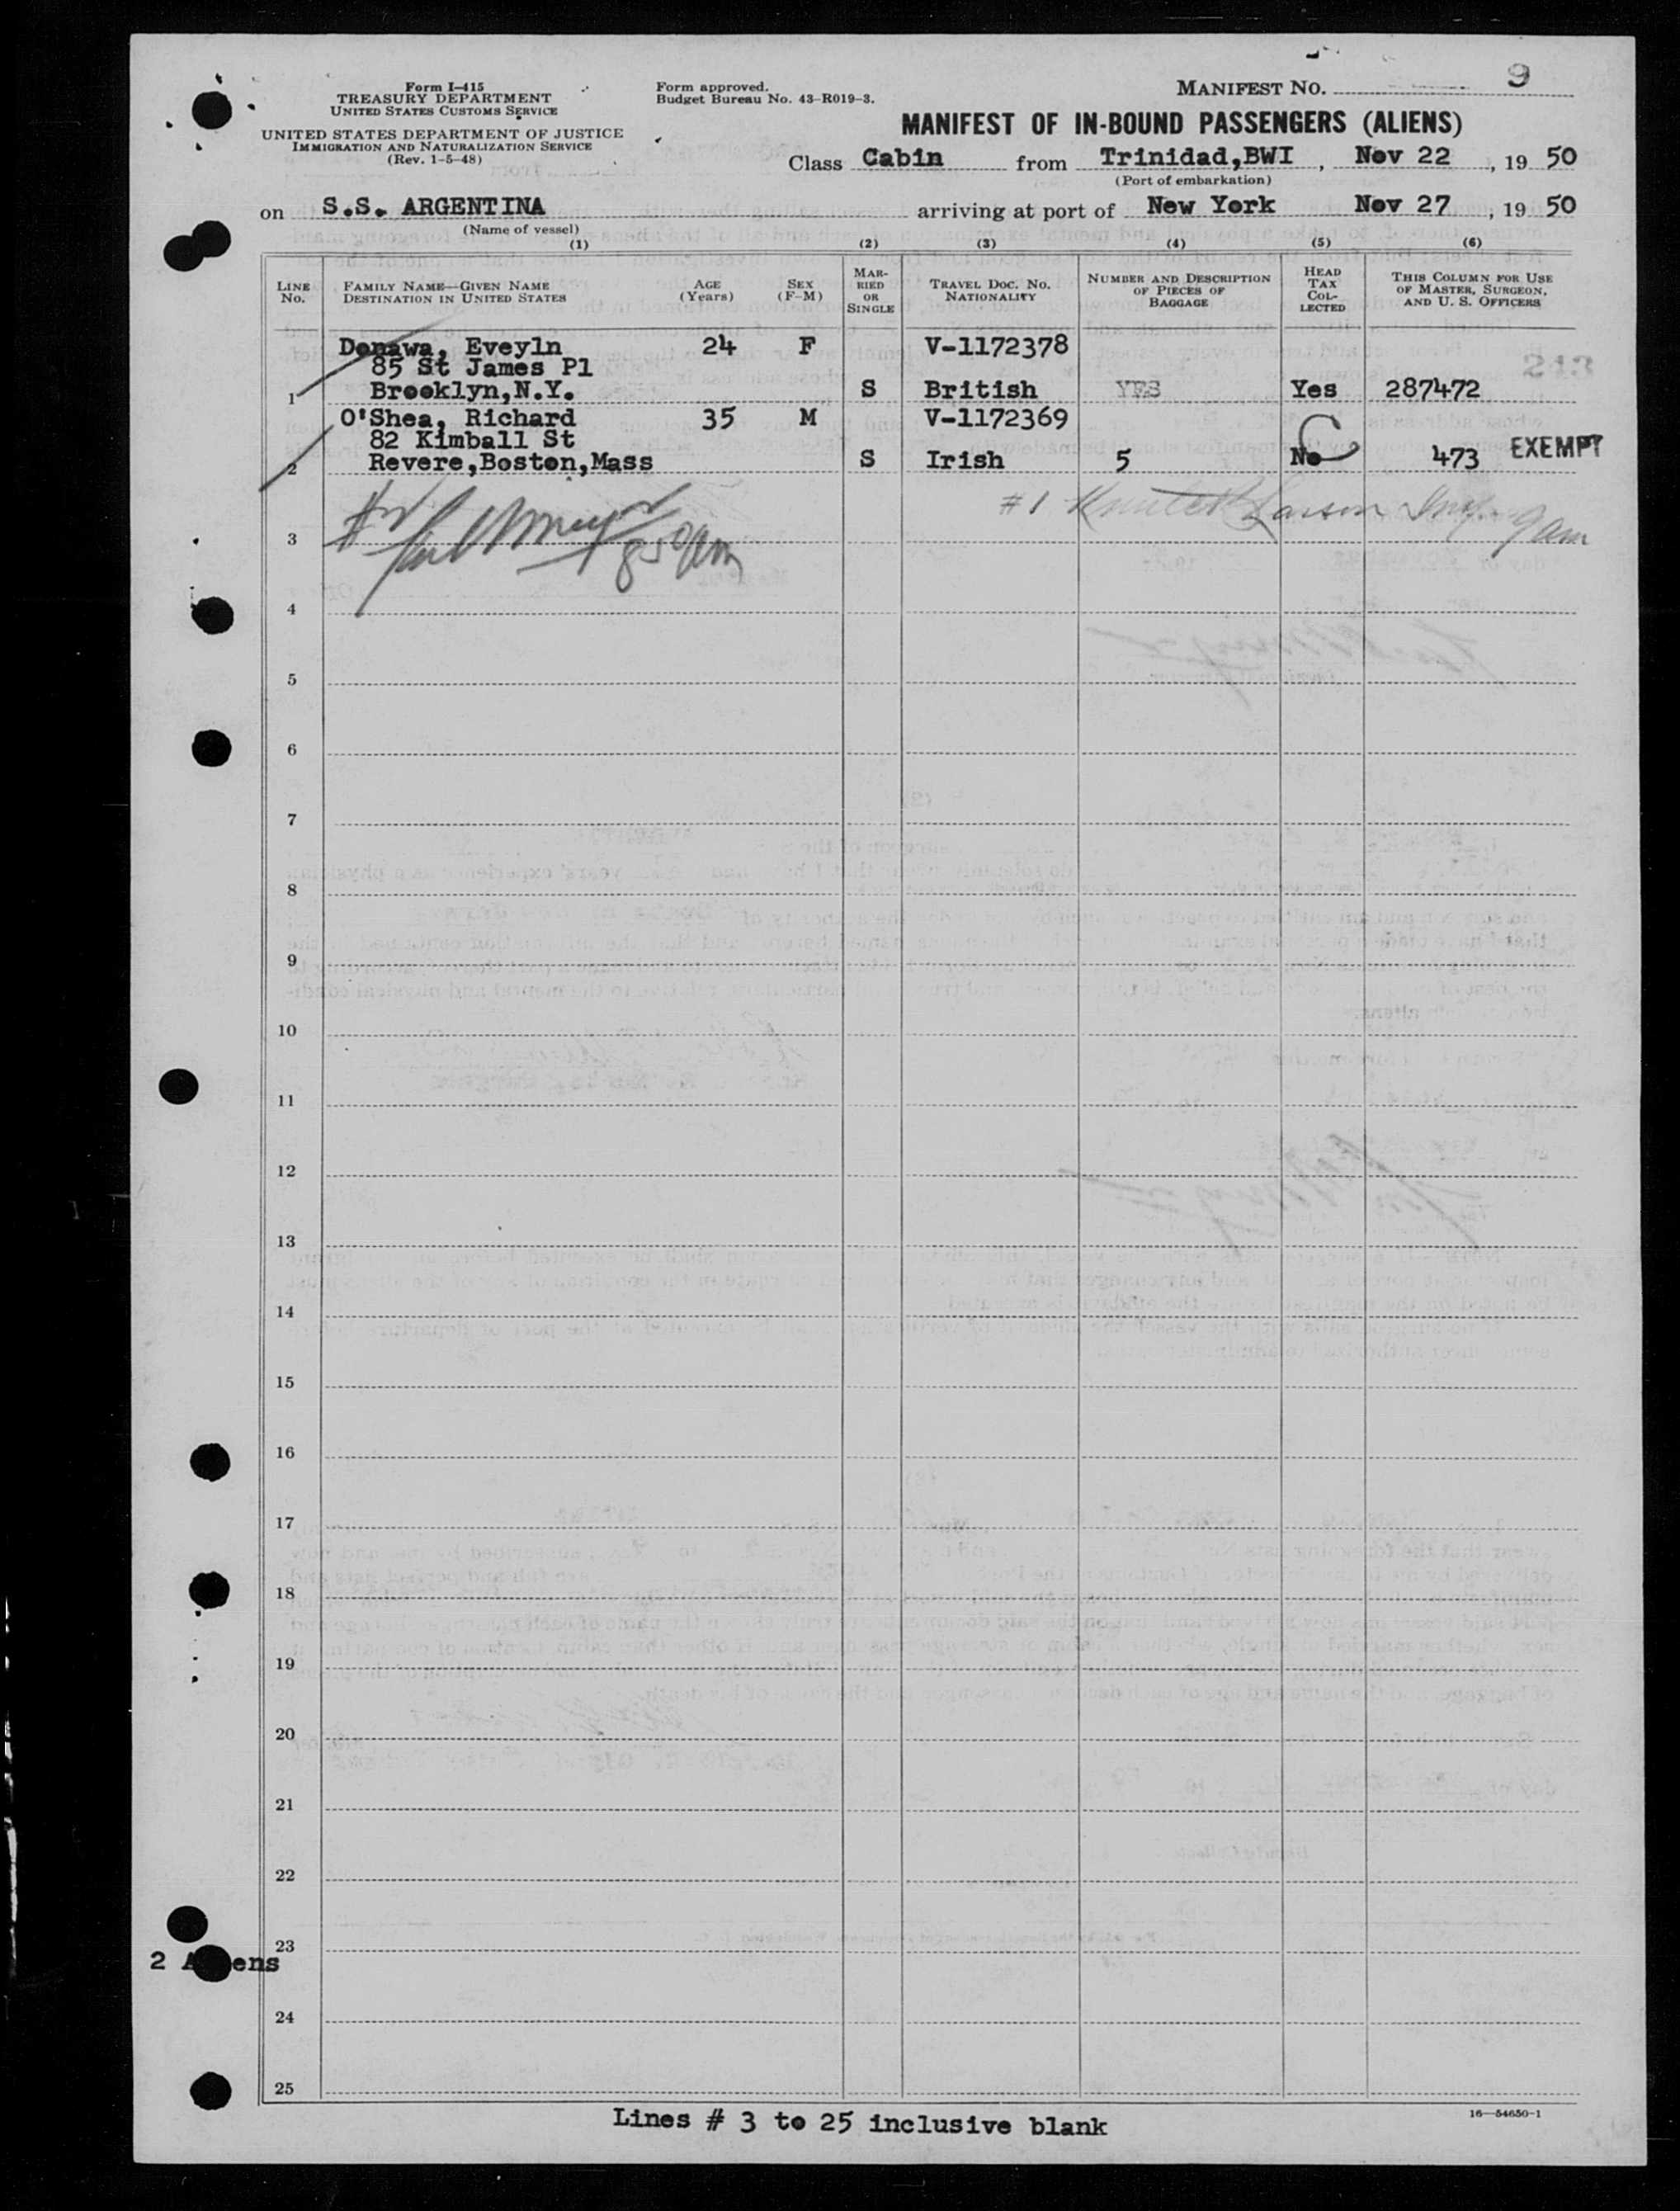 Form I-415
TREASURY DEPARTMENT
UNITED STATES CUSTOMS SERVICE
UNITED STATES DEPARTMENT OF JUSTICE
IMMIGRATION AND NATURALIZATION SERVICE
(Rev. 1-5-48)
Form approved.
Budget Bureau No. 43-R019-3.
MANIFEST NO. 9
MANIFEST OF IN-BOUND PASSENGERS (ALIENS)
Class Cabin from Trinidad,BWI, Nov 22, 19 50
(Port of embarkation)
on S.S. ARGENTINA arriving at port of New York Nov 27, 19 50
(Name of vessel)
(1) (2) (3) (4) (5) (6)
LINE No.
FAMILY NAME—GIVEN NAME
DESTINATION IN UNITED STATES
AGE (Years)
SEX (F-M)
MARRIED OR SINGLE
TRAVEL DOC. NO.
NATIONALITY
NUMBER AND DESCRIPTION OF PIECES OF BAGGAGE
HEAD TAX COLLECTED
THIS COLUMN FOR USE OF MASTER, SURGEON, AND U. S. OFFICERS
Denawa, Eveyln 24 F V-1172378
85 St James Pl 213
1 Brooklyn,N.Y. S British YES Yes 287472
O'Shea, Richard 35 M V-1172369
82 Kimball St
2 Revere,Boston,Mass S Irish 5 No 473 EXEMPT
#1 Larson Insp. 9am
3 850am
4
5
6
7
8
9
10
11
12
13
14
15
16
17
18
19
20
21
22
23
2 A ens
24
25
Lines # 3 to 25 inclusive blank
16—54650-1